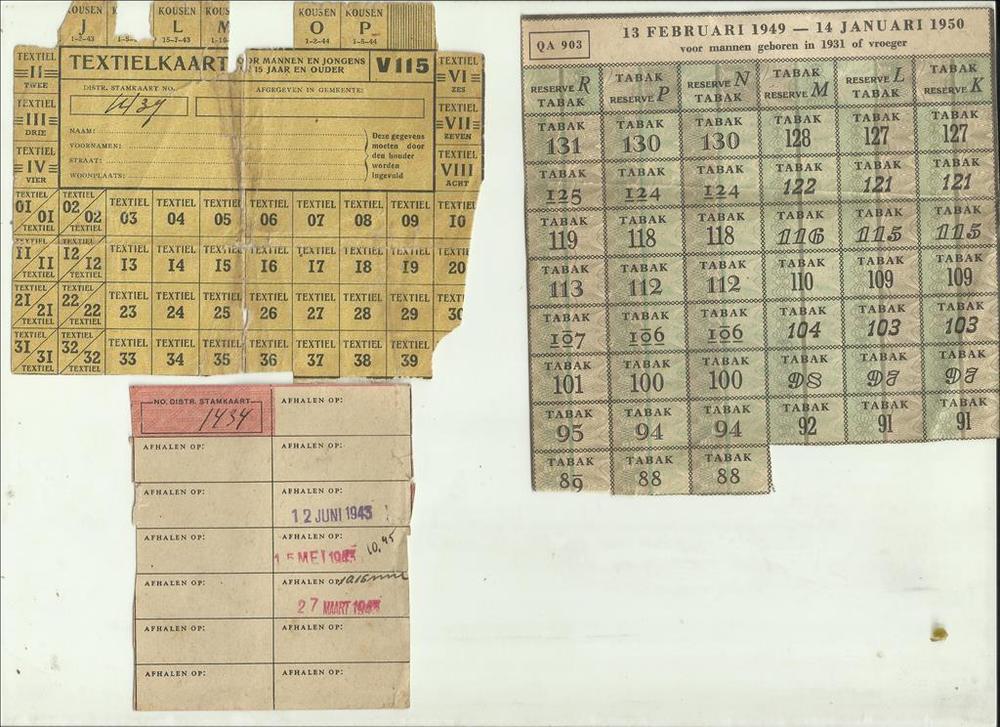 KOUSEN KOUSEN KOUS KOUSEN KOUSEN
J L M O P
1-2-43 15-7-43 1-2-44 1-5-44
TEXTIEL II TWEE
TEXTIEL III DRIE
TEXTIEL IV VIER
TEXTIELKAART OOR MANNEN EN JONGENS 15 JAAR EN OUDER V115
DISTR. STAMKAART NO. AFGEGEVEN IN GEMEENTE:
1434
NAAM:
VOORNAMEN:
STRAAT:
WOONPLAATS:
Deze gegevens
moeten door
den houder
worden
ingevuld
TEXTIEL VI ZES
TEXTIEL VII ZEVEN
TEXTIEL VIII ACHT
TEXTIEL TEXTIEL TEXTIEL TEXTIEL TEXTIEL TEXTIEL TEXTIEL TEXTIEL TEXTIEL TEXTIEL
01 01 02 02 03 04 05 06 07 08 09 10
TEXTIEL TEXTIEL
TEXTIEL TEXTIEL TEXTIEL TEXTIEL TEXTIEL TEXTIEL TEXTIEL TEXTIEL TEXTIEL TEXTIEL
11 11 12 12 13 14 15 16 17 18 19 20
TEXTIEL TEXTIEL
TEXTIEL TEXTIEL TEXTIEL TEXTIEL TEXTIEL TEXTIEL TEXTIEL TEXTIEL TEXTIEL TEXTIEL
21 21 22 22 23 24 25 26 27 28 29 30
TEXTIEL TEXTIEL
TEXTIEL TEXTIEL TEXTIEL TEXTIEL TEXTIEL TEXTIEL TEXTIEL TEXTIEL TEXTIEL
31 31 32 32 33 34 35 36 37 38 39
TEXTIEL TEXTIEL
NO. DISTR. STAMKAART AFHALEN OP:
1434
AFHALEN OP: AFHALEN OP:
AFHALEN OP: AFHALEN OP:
12 JUNI 1943
AFHALEN OP: AFHALEN OP:
15 MEI 1943 10.45
AFHALEN OP: AFHALEN OP:
27 MAART 1943
AFHALEN OP: AFHALEN OP:
AFHALEN OP: AFHALEN OP:
QA 903
13 FEBRUARI 1949 — 14 JANUARI 1950
voor mannen geboren in 1931 of vroeger
RESERVE R TABAK RESERVE N TABAK RESERVE L TABAK
TABAK RESERVE P TABAK RESERVE M TABAK RESERVE K
TABAK TABAK TABAK TABAK TABAK TABAK
131 130 130 128 127 127
TABAK TABAK TABAK TABAK TABAK TABAK
125 124 124 122 121 121
TABAK TABAK TABAK TABAK TABAK TABAK
119 118 118 116 115 115
TABAK TABAK TABAK TABAK TABAK TABAK
113 112 112 110 109 109
TABAK TABAK TABAK TABAK TABAK TABAK
107 106 106 104 103 103
TABAK TABAK TABAK TABAK TABAK TABAK
101 100 100 98 97 97
TABAK TABAK TABAK TABAK TABAK TABAK
95 94 94 92 91 91
TABAK TABAK TABAK
89 88 88